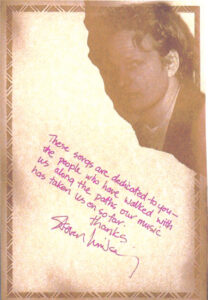 These songs are dedicated to you—
the people who have walked with
us along the paths our music
has taken us on so far.
thanks
Steven